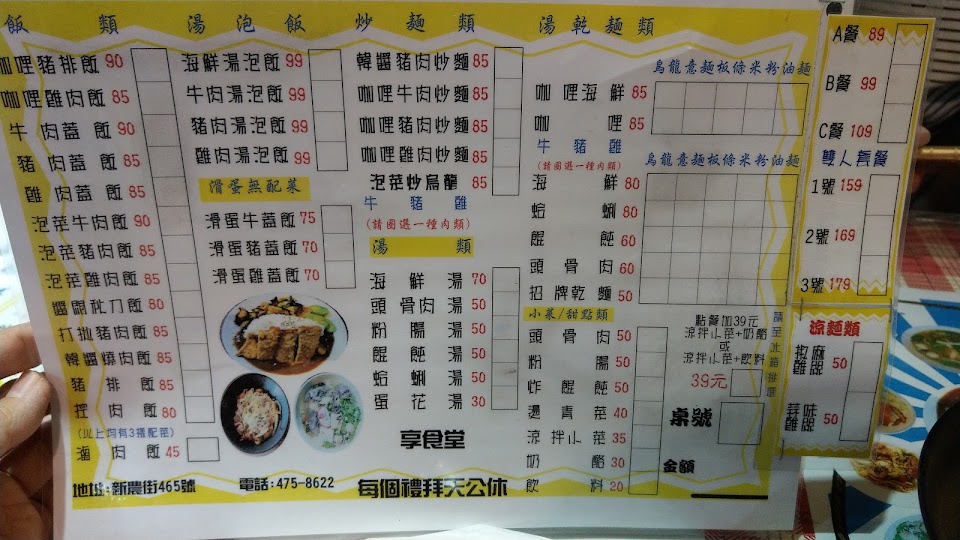 飯類
咖哩豬排飯 90
咖哩雞肉飯 85
牛肉蓋飯 90
豬肉蓋飯 85
雞肉蓋飯 85
泡菜牛肉飯 90
泡菜豬肉飯 85
泡菜雞肉飯 85
醬關東刀飯 80
打拋豬肉飯 85
韓醬燒肉飯 85
豬排飯 85
控肉飯 80
(以上均有3樣配菜)
滷肉飯 45
湯泡飯
海鮮湯泡飯 99
牛肉湯泡飯 99
豬肉湯泡飯 99
雞肉湯泡飯 99
滑蛋無配菜
滑蛋牛蓋飯 75
滑蛋豬蓋飯 70
滑蛋雞蓋飯 70
炒麵類
韓醬豬肉炒麵 85
咖哩牛肉炒麵 85
咖哩豬肉炒麵 85
咖哩雞肉炒麵 85
泡菜炒烏龍 85
牛豬雞
(請圈選一種肉類)
湯類
海鮮湯 70
頭骨肉湯 50
粉腸湯 50
餛飩湯 50
蛤蜊湯 50
蛋花湯 30
享食堂
湯乾麵類
烏龍意麵板條米粉油麵
咖哩海鮮 85
咖哩 85
牛豬雞
(請圈選一種肉類)
烏龍意麵板條米粉油麵
海鮮 80
蛤蜊 80
餛飩 60
頭骨肉 60
招牌乾麵 50
小菜/甜點類
頭骨肉 50
粉腸 50
炸餛飩 50
燙青菜 40
涼拌小菜 35
奶酪 30
飲料 20
點餐加39元
涼拌小菜+奶酪
或
涼拌小菜+飲料
39元
桌號
金額
地址:新農街465號
電話:475-8622
每個禮拜天公休
A餐 89
B餐 99
C餐 109
雙人套餐
1號 159
2號 169
3號 179
涼麵類
椒麻雞腿 50
蒜味雞腿 50